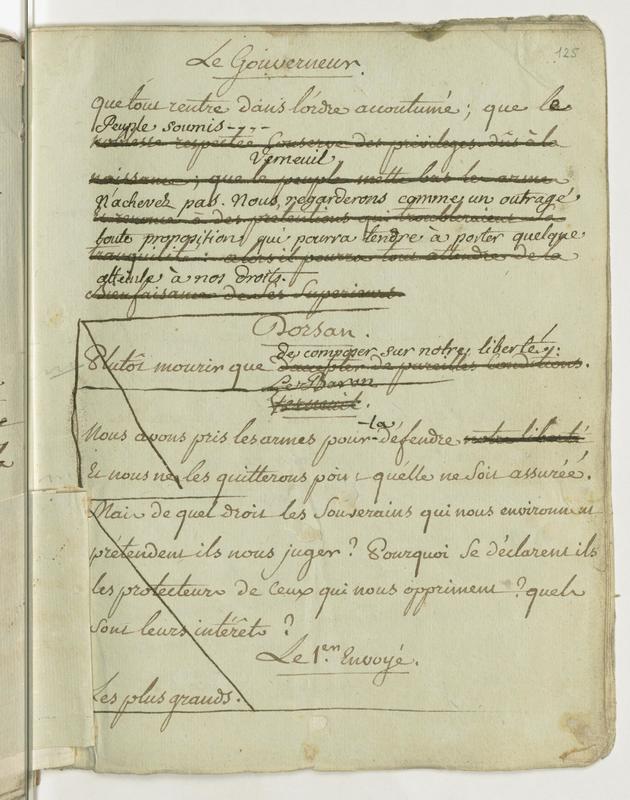 125
Le Gouverneur.
que tout rentre dans l'ordre accoutumé; que le
Peuple soumis----
noblesse respectée conserve des privileges dûs à la
Verneuil
naissance; que le peuple mette bas les armes
N'achevez pas. Nous regarderons comme un outrage
et renonce à des prétentions qui troubleraient la
toute proposition qui pourra tendre à porter quelque
tranquilité: alors il pourra tout attendre de la
atteinte à nos droits.
bienfaisance de ses Superieurs
Dorsan.
de composer sur notre liberté!
Plutôt mourir que d'accepter de pareilles conditions.
Le Baron
Verneuil.
-la
Nous avons pris les armes pour-défendre notre liberté
Et nous ne les quitterons point quélle ne soit assurée.
Mais de quel droit les Souverains qui nous environnent
prétendent ils nous juger? Pourquoi se déclarent ils
les protecteurs de Ceux qui nous oppriment? quels
sont leurs intérêts?
Le 1.er Envoyé.
Les plus grands.